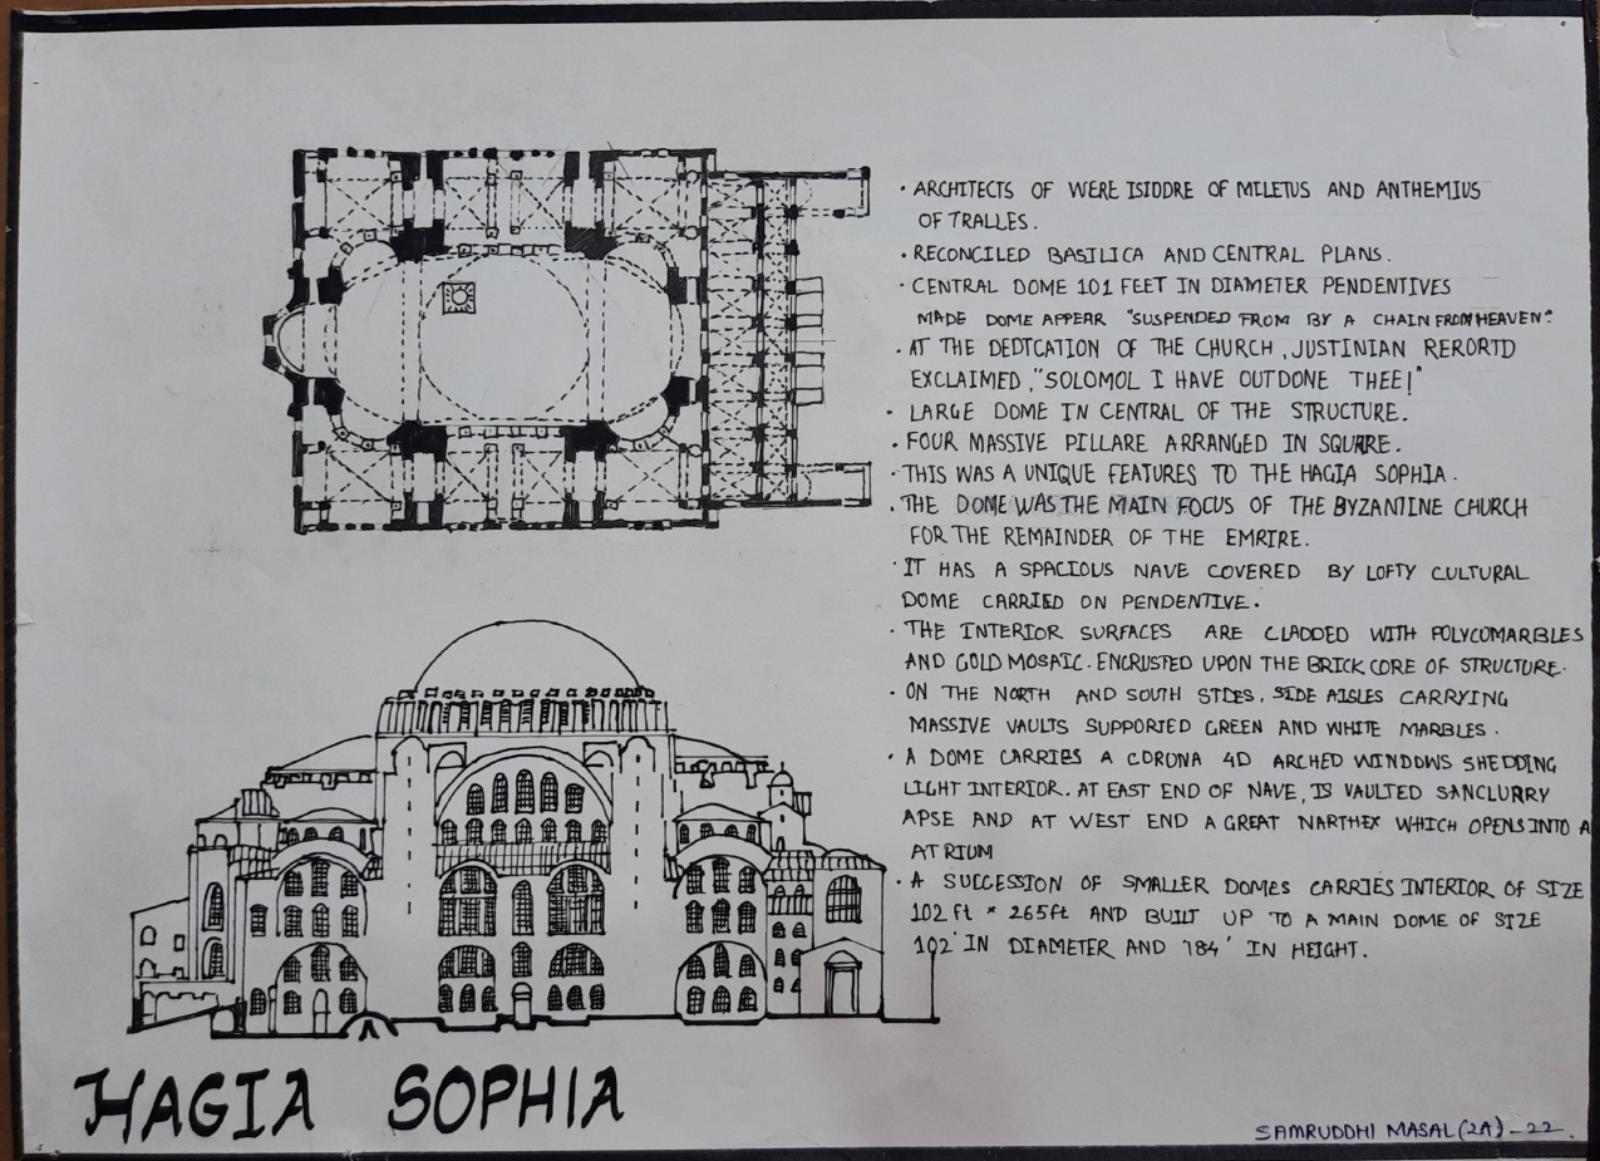 · ARCHITECTS OF WERE ISIODRE OF MILETUS AND ANTHEMIUS
OF TRALLES.
· RECONCILED BASILICA AND CENTRAL PLANS.
· CENTRAL DOME 101 FEET IN DIAMETER PENDENTIVES
MADE DOME APPEAR "SUSPENDED FROM BY A CHAIN FROM HEAVEN".
· AT THE DEDTCATION OF THE CHURCH, JUSTINIAN RERORTD
EXCLAIMED, "SOLOMOL I HAVE OUTDONE THEE!"
· LARGE DOME IN CENTRAL OF THE STRUCTURE.
· FOUR MASSIVE PILLARE ARRANGED IN SQUARE.
· THIS WAS A UNIQUE FEATURES TO THE HAGIA SOPHIA.
· THE DOME WAS THE MAIN FOCUS OF THE BYZANTINE CHURCH
FOR THE REMAINDER OF THE EMRIRE.
· IT HAS A SPACIOUS NAVE COVERED BY LOFTY CULTURAL
DOME CARRIED ON PENDENTIVE.
· THE INTERIOR SURFACES ARE CLADDED WITH POLYCOMARBLES
AND GOLD MOSAIC. ENCRUSTED UPON THE BRICK CORE OF STRUCTURE.
· ON THE NORTH AND SOUTH STDES, SIDE AISLES CARRYING
MASSIVE VAULTS SUPPORTED GREEN AND WHITE MARBLES.
· A DOME CARRIES A CORONA 4D ARCHED WINDOWS SHEDDING
LIGHT INTERIOR. AT EAST END OF NAVE, IS VAULTED SANCLURRY
APSE AND AT WEST END A GREAT NARTHEX WHICH OPENS INTO A
ATRIUM
· A SUCCESSION OF SMALLER DOMES CARRIES INTERIOR OF SIZE
102 ft * 265ft AND BUILT UP TO A MAIN DOME OF SIZE
102' IN DIAMETER AND '184' IN HEIGHT.
HAGIA SOPHIA
SAMRUDDHI MASAL (2A) - 22